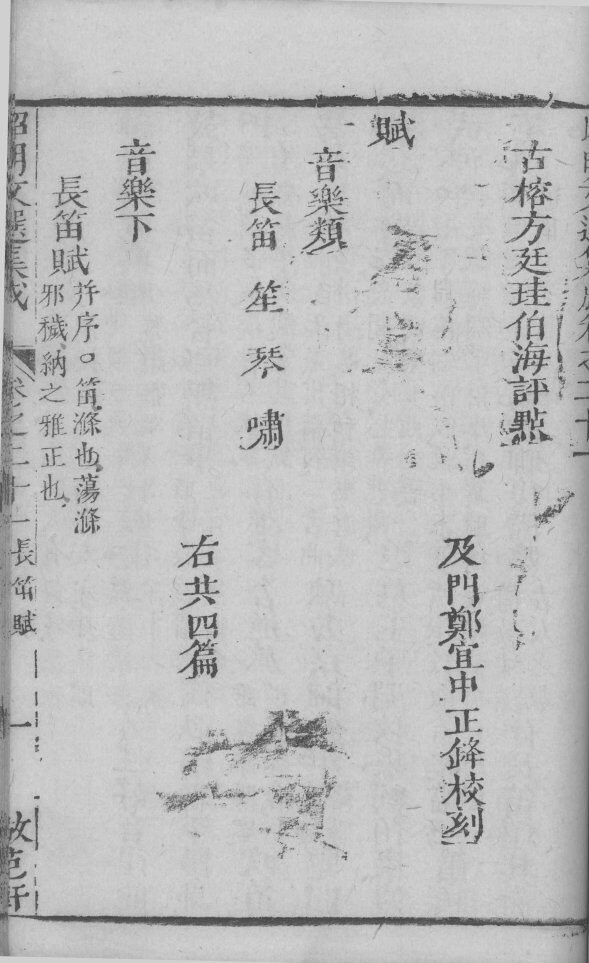 昭明文選集成卷之二十一
古榕方廷珪伯海評點
及門鄭宜中正鋒校刻
賦
音樂類
長笛 笙 琴 嘯
右共四篇
音樂下
長笛賦 并序○笛滌也蕩滌
邪穢納之雅正也
昭明文選集成 卷之二十一 長笛賦 一 倣范軒